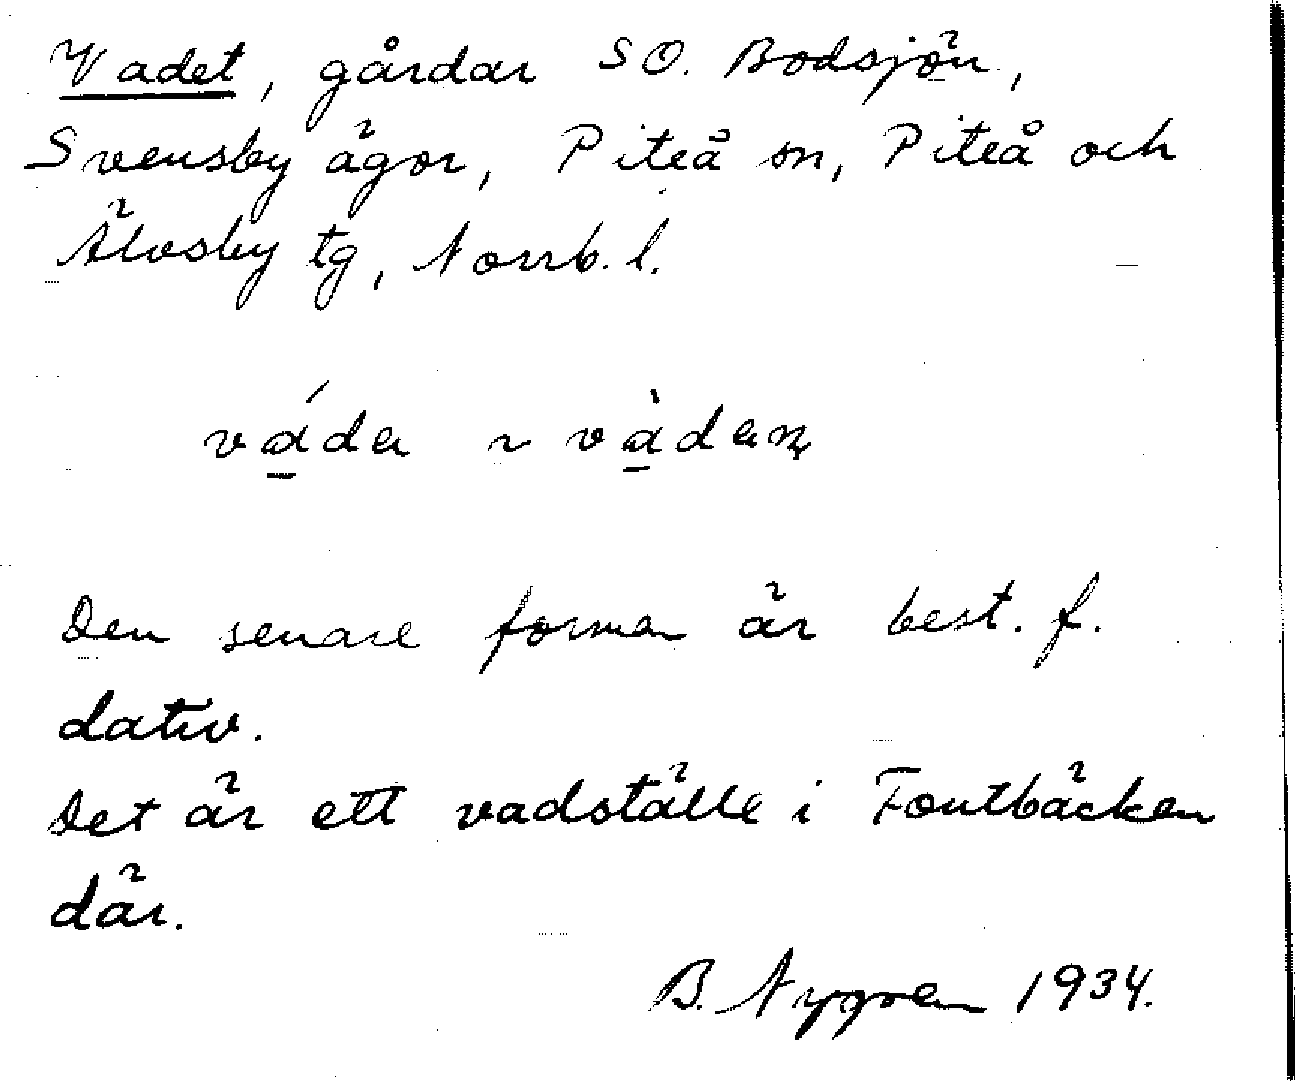 Vadet, gårdar SO. Bodsjön,
Svensby ägor, Piteå sn, Piteå och
Älvsby tg, Norrb. l.
vá̱da ~ và̱dan
Den senare formen är best. f.
dativ.
Det är ett vadställe i Fontbäcken
där.
B. Nygren 1934.